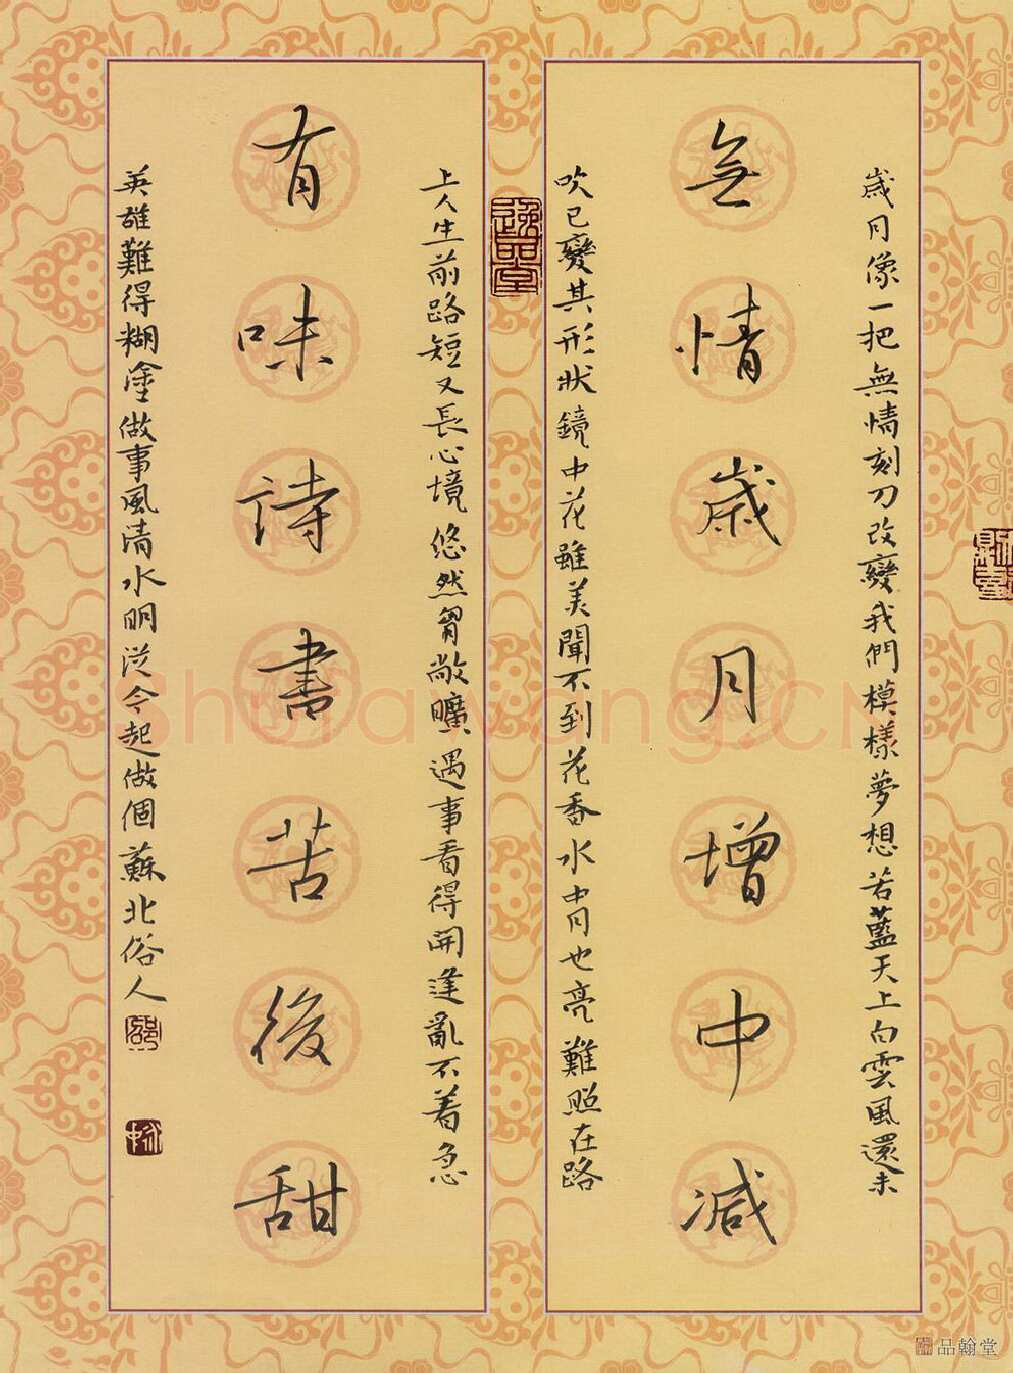 歲月像一把無情刻刀改變我們模樣夢想若藍天上白雲風還未
無情歲月增中減
吹已變其形狀鏡中花雖美聞不到花香水中月也亮難照在路
逸品堂
上人生前路短又長心境悠然胷敞曠遇事看得開逢亂不着急
有味詩書苦後甜
英雄難得糊塗做事風清水明從今起做個蘇北俗人
Shufawang.CN
品翰堂